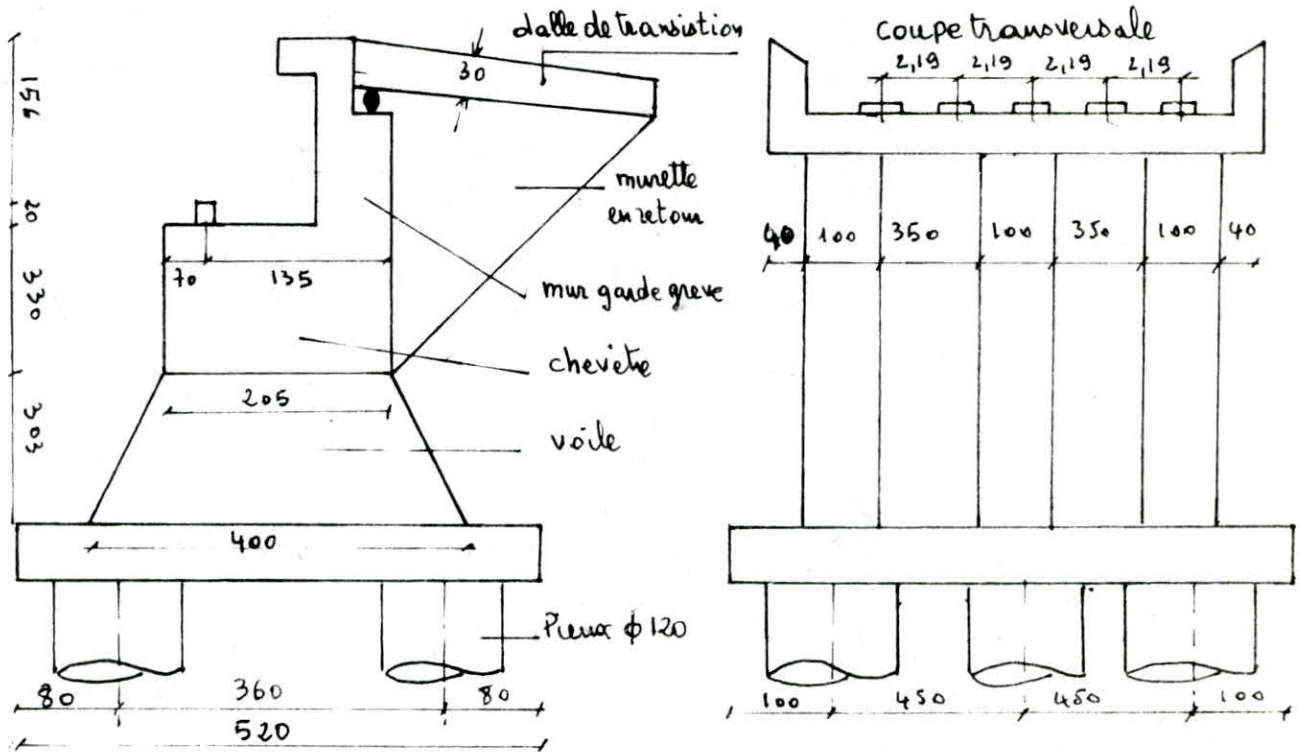 dalle de transistion
30
156
20
330
303
70 135
murette
en retour
mur garde greve
chevêtre
205
voile
400
Pieux ϕ 120
80 360 80
520
coupe transversale
2,19 2,19 2,19 2,19
40 100 350 100 350 100 40
100 450 450 100